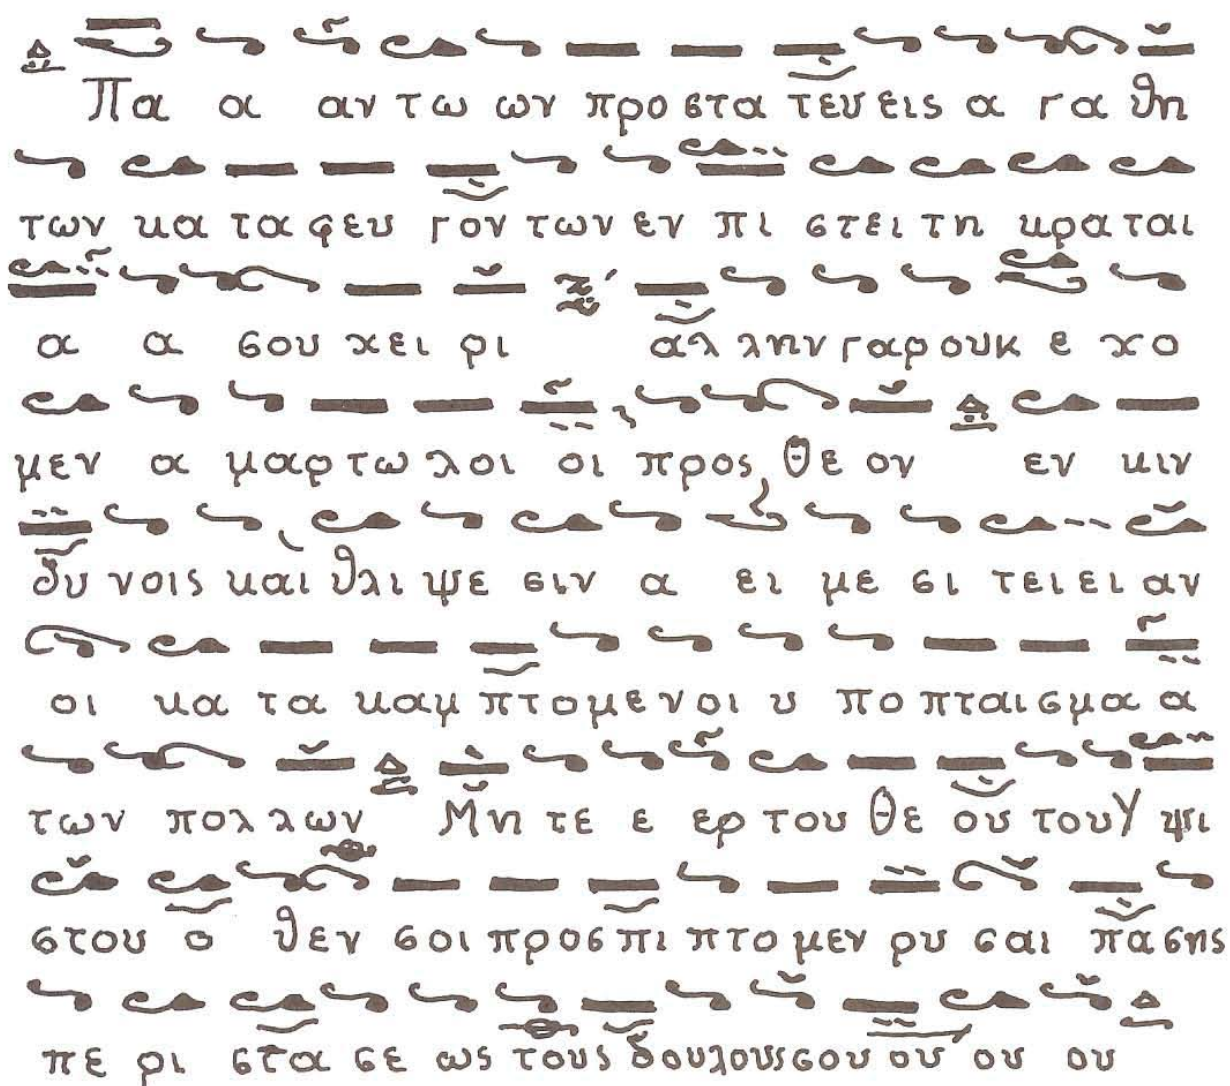 Πα α αν τω ων προ στα τευ εις α γα θη
των κα τα φευ γον των εν πι στει τη κρα ται
α α σου χει ρι αλ λην γαρ ουκ ε χο
μεν α μαρ τω λοι οι προς Θε ον εν κιν
δυ νοις και θλι ψε σιν α ει με σι τει ει αν
οι κα τα καμ πτο με νοι υ πο πται σμα α
των πολ λων Μη τε ε ερ του Θε ου του Υ ψι
στου ο θεν σοι προσ πι πτο μεν ρυ σαι πα σης
πε ρι στα σε ως τους δου λους σου ου ου ου